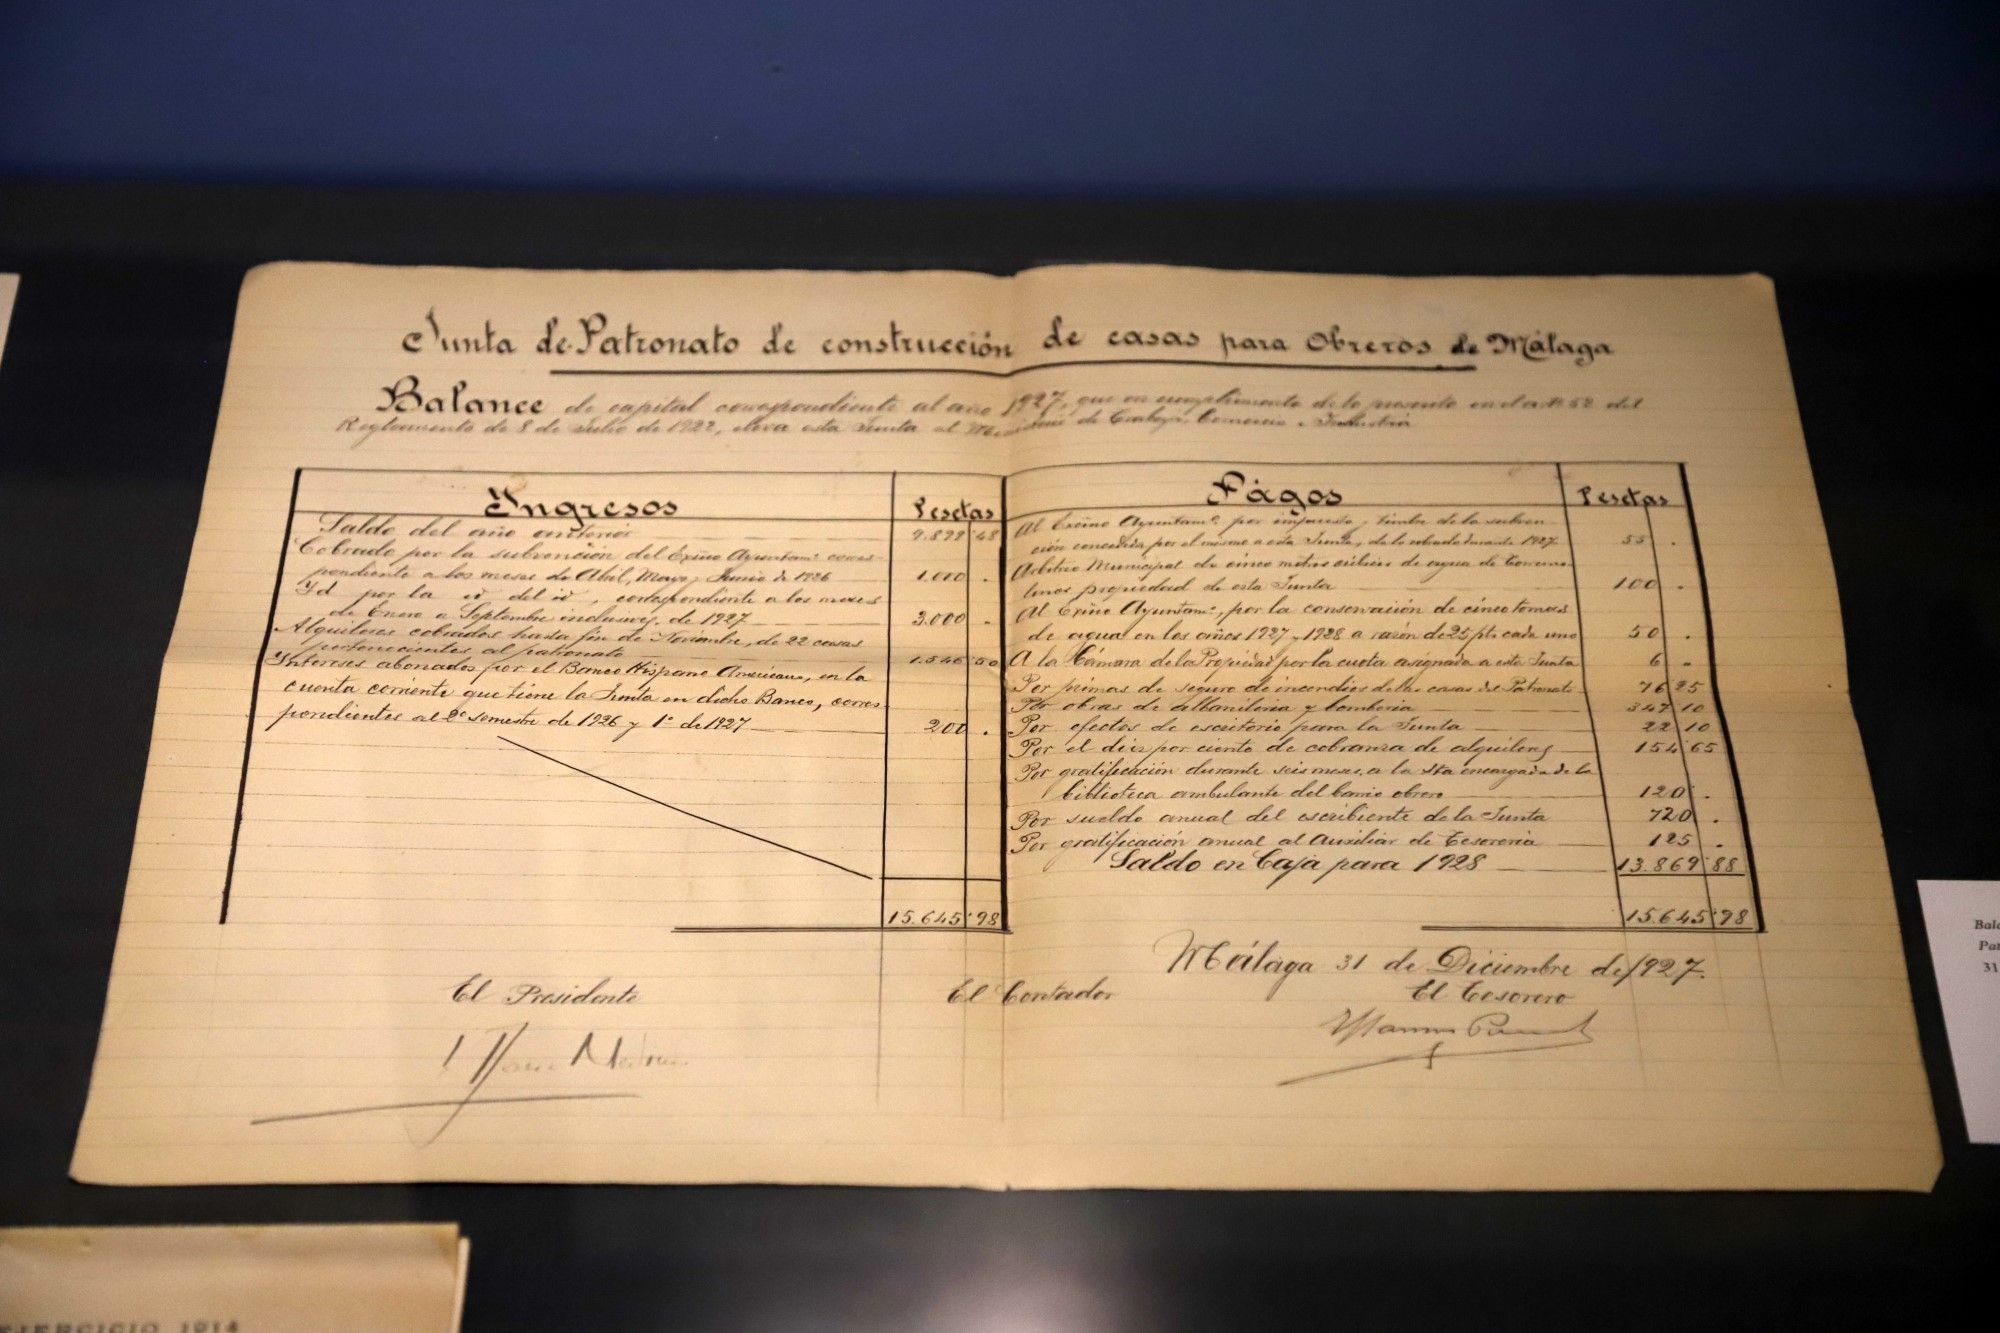 Junta de Patronato de construcción de casas para Obreros de Málaga
Balance de capital correspondiente al año 1927, que en cumplimiento de lo en el art. 52 del
Reglamento de 8 de Julio de 1922, eleva esta Junta al Ministerio de Trabajo, Comercio e Industria
Ingresos Pesetas
Saldo del año anterior 9.899 48
Cobrado por la subvención del Exmo Ayuntamº corres-
pondiente a los meses de Abril, Mayo y Junio de 1926 1.000 .
Id por la id del id, correspondiente a los meses
de Enero a Septiembre inclusives, de 1927 3.000 .
Alquileres cobrados hasta fin de Noviembre, de 22 casas
pertenecientes al patronato 1.546 50
Intereses abonados por el Banco Hispano Americano, en la
cuenta corriente que tiene la Junta en dicho Banco, corres-
pondientes al 2º semestre de 1926 y 1º de 1927 200 .
15.645 98
Pagos Pesetas
Al Excmo Ayuntamº por impuesto y timbre de la subven-
ción concedida por el mismo a esta Junta, de lo cobrado durante 1927 55 .
Arbitrio Municipal de cinco metros cúbicos de agua de Torremo-
linos propiedad de esta Junta 100 .
Al Exmo Ayuntamº, por la conservación de cinco tomas
de agua en los años 1927 y 1928 a razón de 25 pts cada uno 50 .
A la Cámara de la Propiedad por la cuota asignada a esta Junta 6 .
Por primas de seguro de incendios de las casas del Patronato 76 25
Por obras de albañilería y bombería 347 10
Por efectos de escritorio para la Junta 22 10
Por el diez por ciento de cobranza de alquileres 154 65
Por gratificación durante seis meses, a la Sta encargada de la
biblioteca ambulante del barrio obrero 120 .
Por sueldo anual del escribiente de la Junta 720 .
Por gratificación anual al Auxiliar de Tesorería 125 .
Saldo en Caja para 1928 13.869 88
15.645 98
Málaga 31 de Diciembre de 1927.
El Presidente El Contador El Tesorero
Bala
Pat
31
EJERCICIO 1914